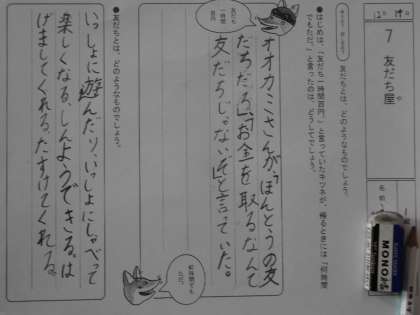 7 友だち屋
友だちとは、どのようなものでしょう。
●はじめは、「友だち一時間百円。」と言っていたキツネが、帰るときには「何時間
でもただ。」と言ったのは、どうしてでしょう。
友だち
一時間
百円
オオカミさんが、「ほんとうの友
だちだろ」、「お金を取るなんて
友だちじゃないぞ」と言っていた。
何時間でも
ただ。
●友だちとは、どのようなものでしょう。
いっしょに遊んだり、いっしょにしゃべって
楽しくなる。しんようできる。は
げましてくれる。たすけてくれる。
名前
MONO